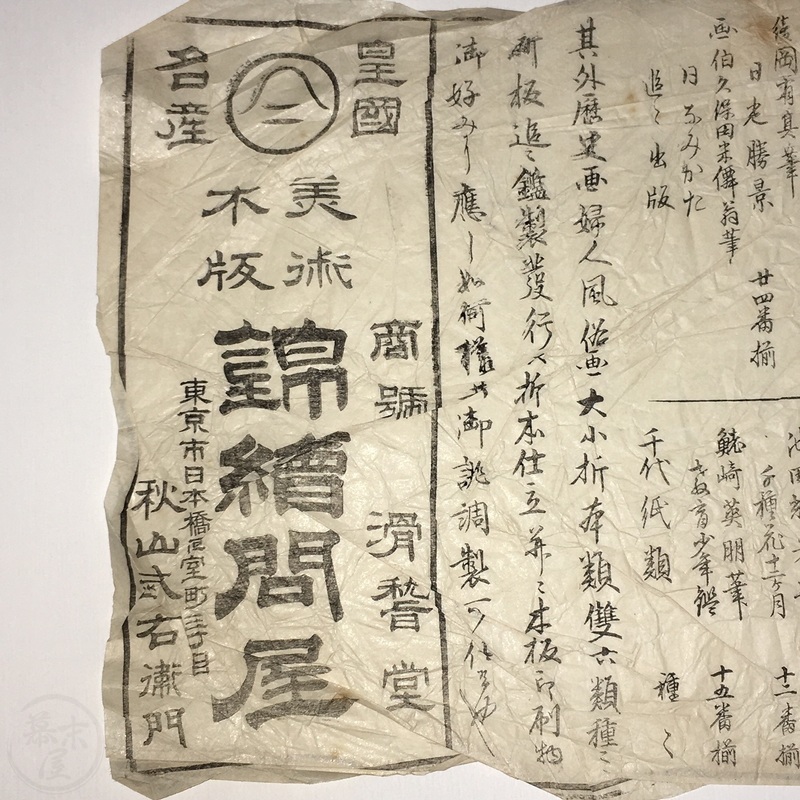 綾岡有真筆
日光勝景 廿四番揃
画伯久保田米僊翁筆
日なみかた
追々出版
千種花十二ヶ月 十二番揃
鰭崎英朋筆
教育少年鑑 十五番揃
千代紙類 種々
其外歴史画婦人風俗画大小折本類雙六類種々
新板追々鑑製發行且折本仕立并ニ木板印刷物
御好みニ應し如何様共御誂調製可仕候也
皇國
名産
美術
木版
商號 滑稽堂
錦繪問屋
東京市日本橋区室町三丁目
秋山武右衛門
幕末屋